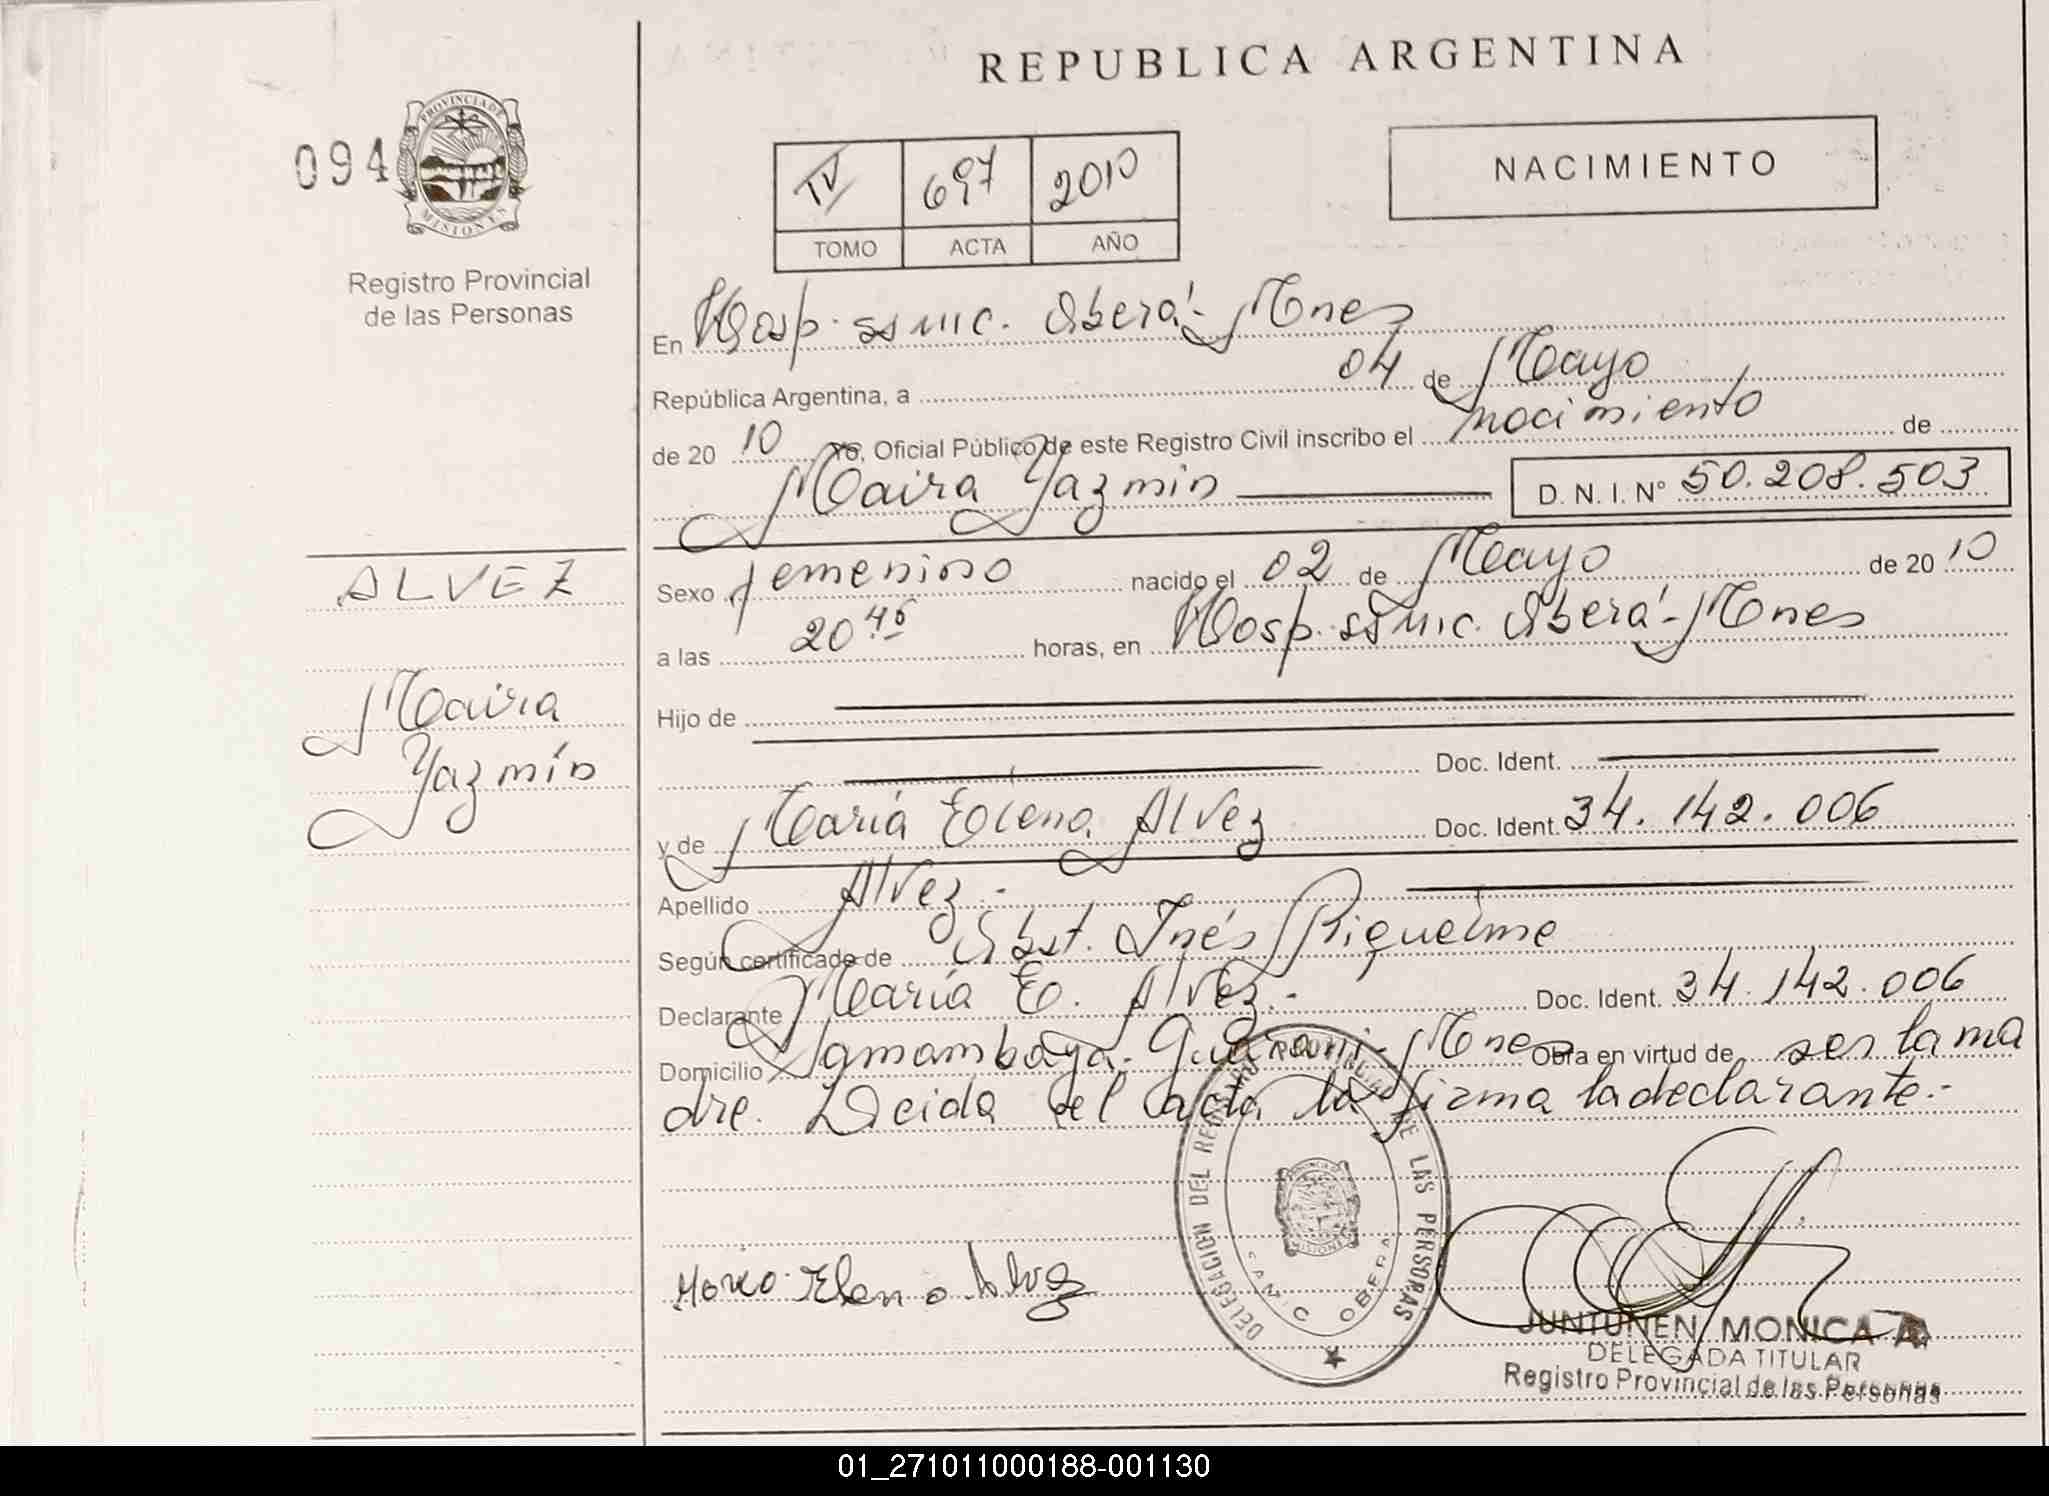 REPUBLICA ARGENTINA
094
PROVINCIA DE
MISIONES
Registro Provincial
de las Personas
IV 697 2010
TOMO ACTA AÑO
NACIMIENTO
En Hosp. SSMIC. Oberá - Mnes
República Argentina, a 04 de Mayo
de 20 10 Yo, Oficial Público de este Registro Civil inscribo el nacimiento de
Maira Yazmin D. N. I. Nº 50.208.503
ALVEZ
Maira
Yazmín
Sexo femenino nacido el 02 de Mayo de 20 10
a las 20 45 horas, en Hosp. SSMIC. Oberá - Mnes
Hijo de
Doc. Ident.
y de María Elena Alvez Doc. Ident. 34.142.006
Apellido Alvez.-
Según certificado de Obst. Inés Riquelme
Declarante María E. Alvez.- Doc. Ident. 34.142.006
Domicilio Guaraní - Mnes Obra en virtud de ser la ma
dre. Leida el acta la firma la declarante.-
Maria Elena Alvez
DELEGACION DEL REGISTRO PROVINCIAL DE LAS PERSONAS
SAMIC OBERA
JUNTUNEN MONICA A.
DELEGADA TITULAR
Registro Provincial de las Personas
01_271011000188-001130